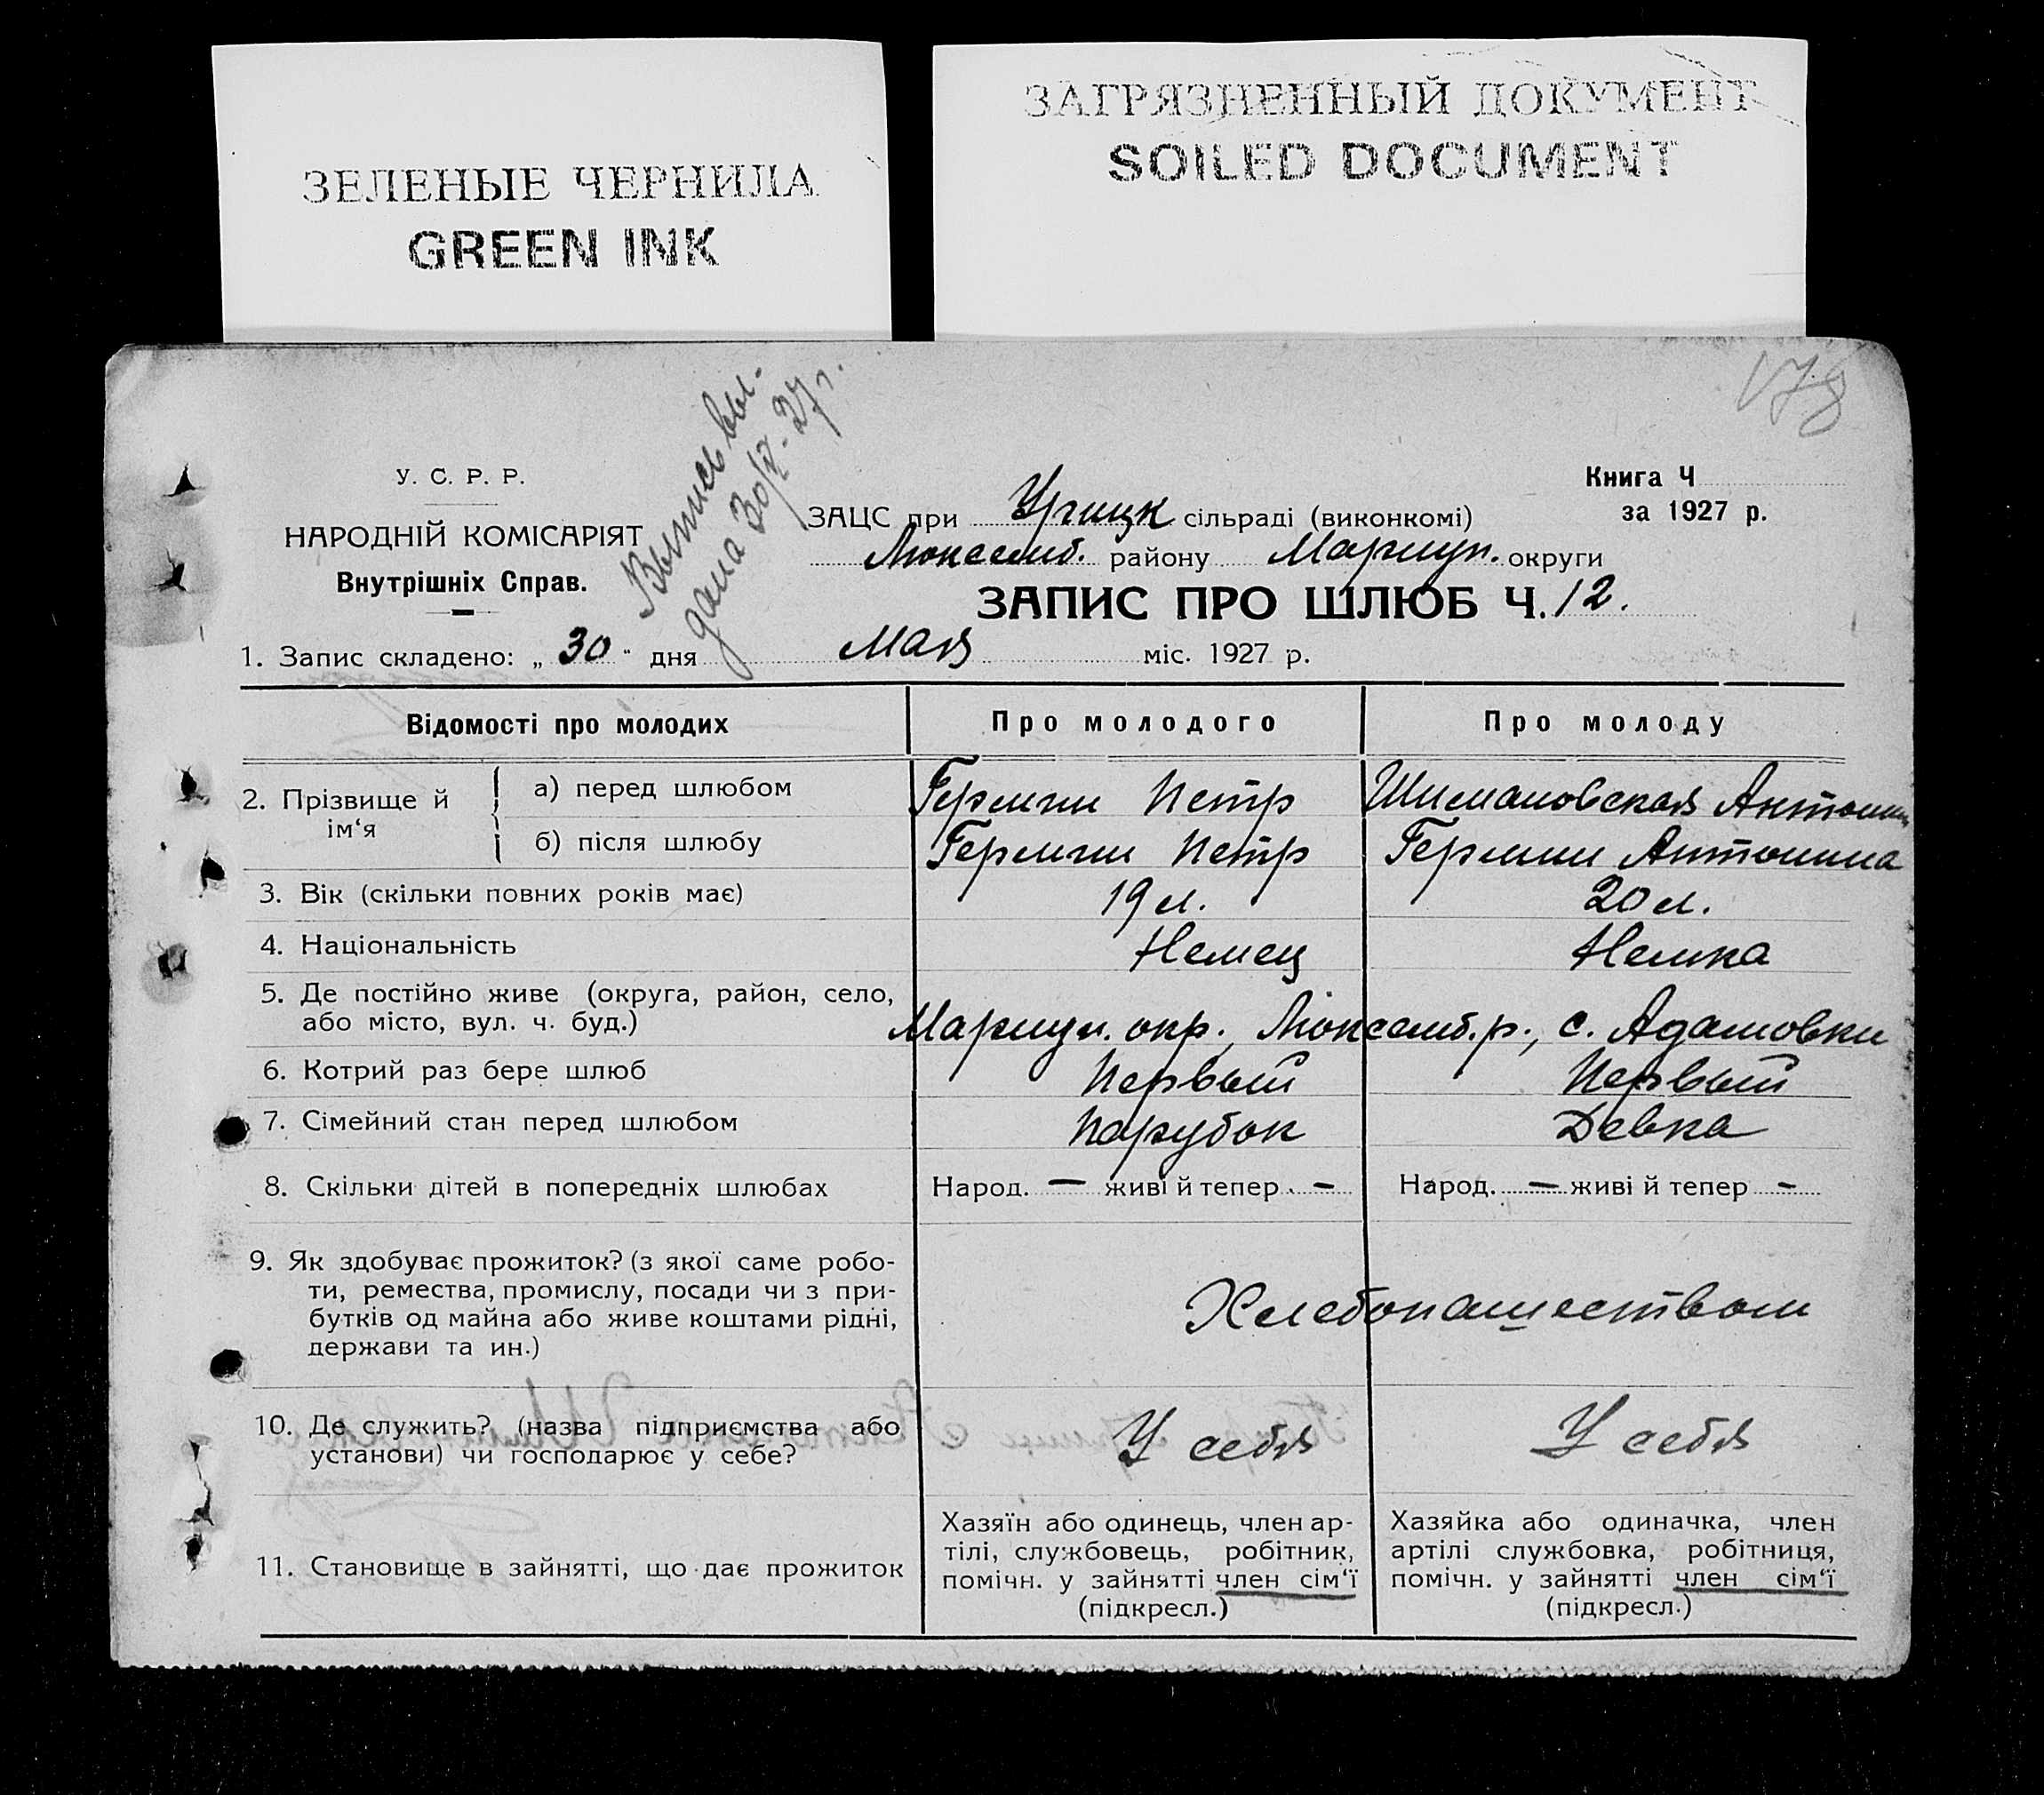 ЗЕЛЕНЫЕ ЧЕРНИЛА
GREEN INK
ЗАГРЯЗНЕННЫЙ ДОКУМЕНТ
SOILED DOCUMENT
178
У. С. Р. Р.
НАРОДНІЙ КОМІСАРІЯТ
Внутрішніх Справ.
Выпись вы-
дана 30/V-27 г.
Книга Ч
за 1927 р.
ЗАЦС при Урицк сільраді (виконкомі)
Люксемб. району Мариуп. округи
ЗАПИС ПРО ШЛЮБ Ч. 12.
1. Запис складено: „ 30 " дня Мая міс. 1927 р.
Відомості про молодих Про молодого Про молоду
2. Прізвище й ім‘я
а) перед шлюбом Герман Петр Шимановская Антонин
б) після шлюбу Герман Петр Герман Антонина
3. Вік (скільки повних років має) 19 л. 20 л.
4. Національність Немец Немка
5. Де постійно живе (округа, район, село,
або місто, вул. ч. буд.) Мариуп. окр., Люксемб. р., с. Адамовки
6. Котрий раз бере шлюб Первый Первый
7. Сімейний стан перед шлюбом Парубок Девка
8. Скільки дітей в попередніх шлюбах Народ. — живі й тепер - Народ. — живі й тепер -
9. Як здобуває прожиток? (з якої саме робо-
ти, ремества, промислу, посади чи з при-
бутків од майна або живе коштами рідні,
держави та ин.) Хлебопашеством
10. Де служить? (назва підприємства або
установи) чи господарює у себе? У себя У себя
11. Становище в зайнятті, що дає прожиток
Хазяїн або одинець, член ар-
тілі, службовець, робітник,
помічн. у зайнятті член сім‘ї
(підкресл.)
Хазяйка або одиначка, член
артілі службовка, робітниця,
помічн. у зайнятті член сім‘ї
(підкресл.)